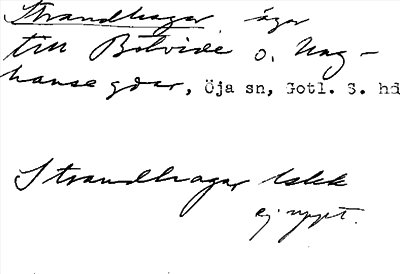 Strandhagar, ägor
till Bölvide o. Ung-
hanse gdar, Öja sn, Gotl. S. hd
Strandhagar
ej uppt.